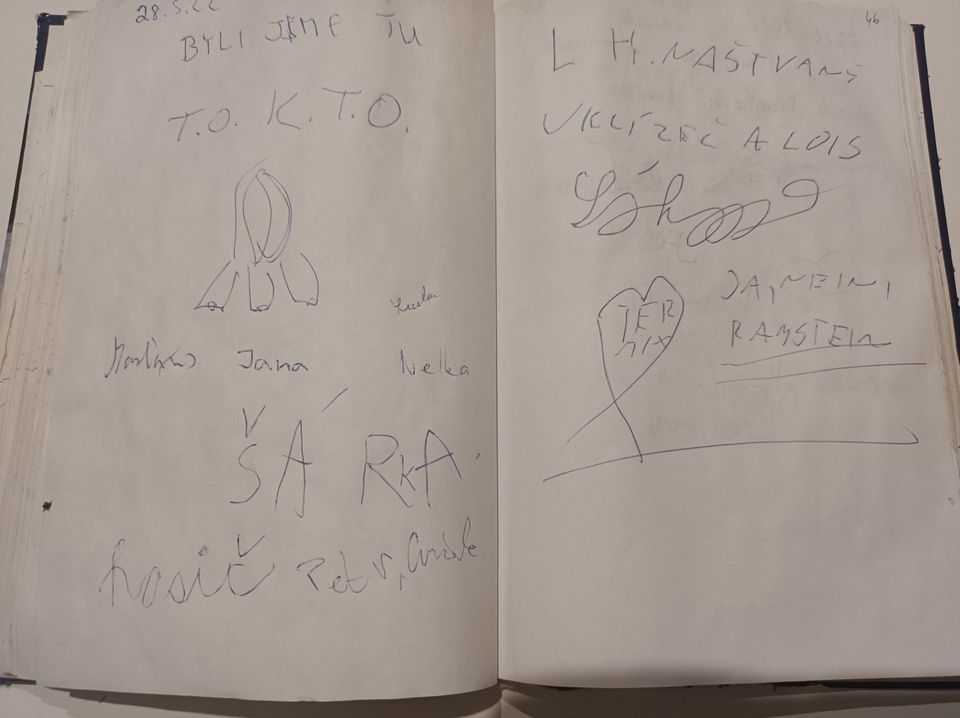 28.5.22
BYLI JSME TU
T.O. K.T.O.
Jana Nelka
ŠÁRKA.
hasič Petr,
46
L H. NAŠTVANÝ
UKLÍZEČ ALOIS
JA, NEIN,
RAMSTEIN